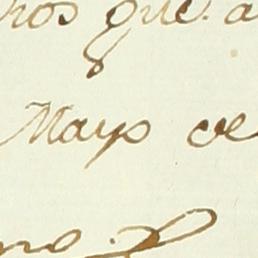 ros que. a
Mayo de
no.